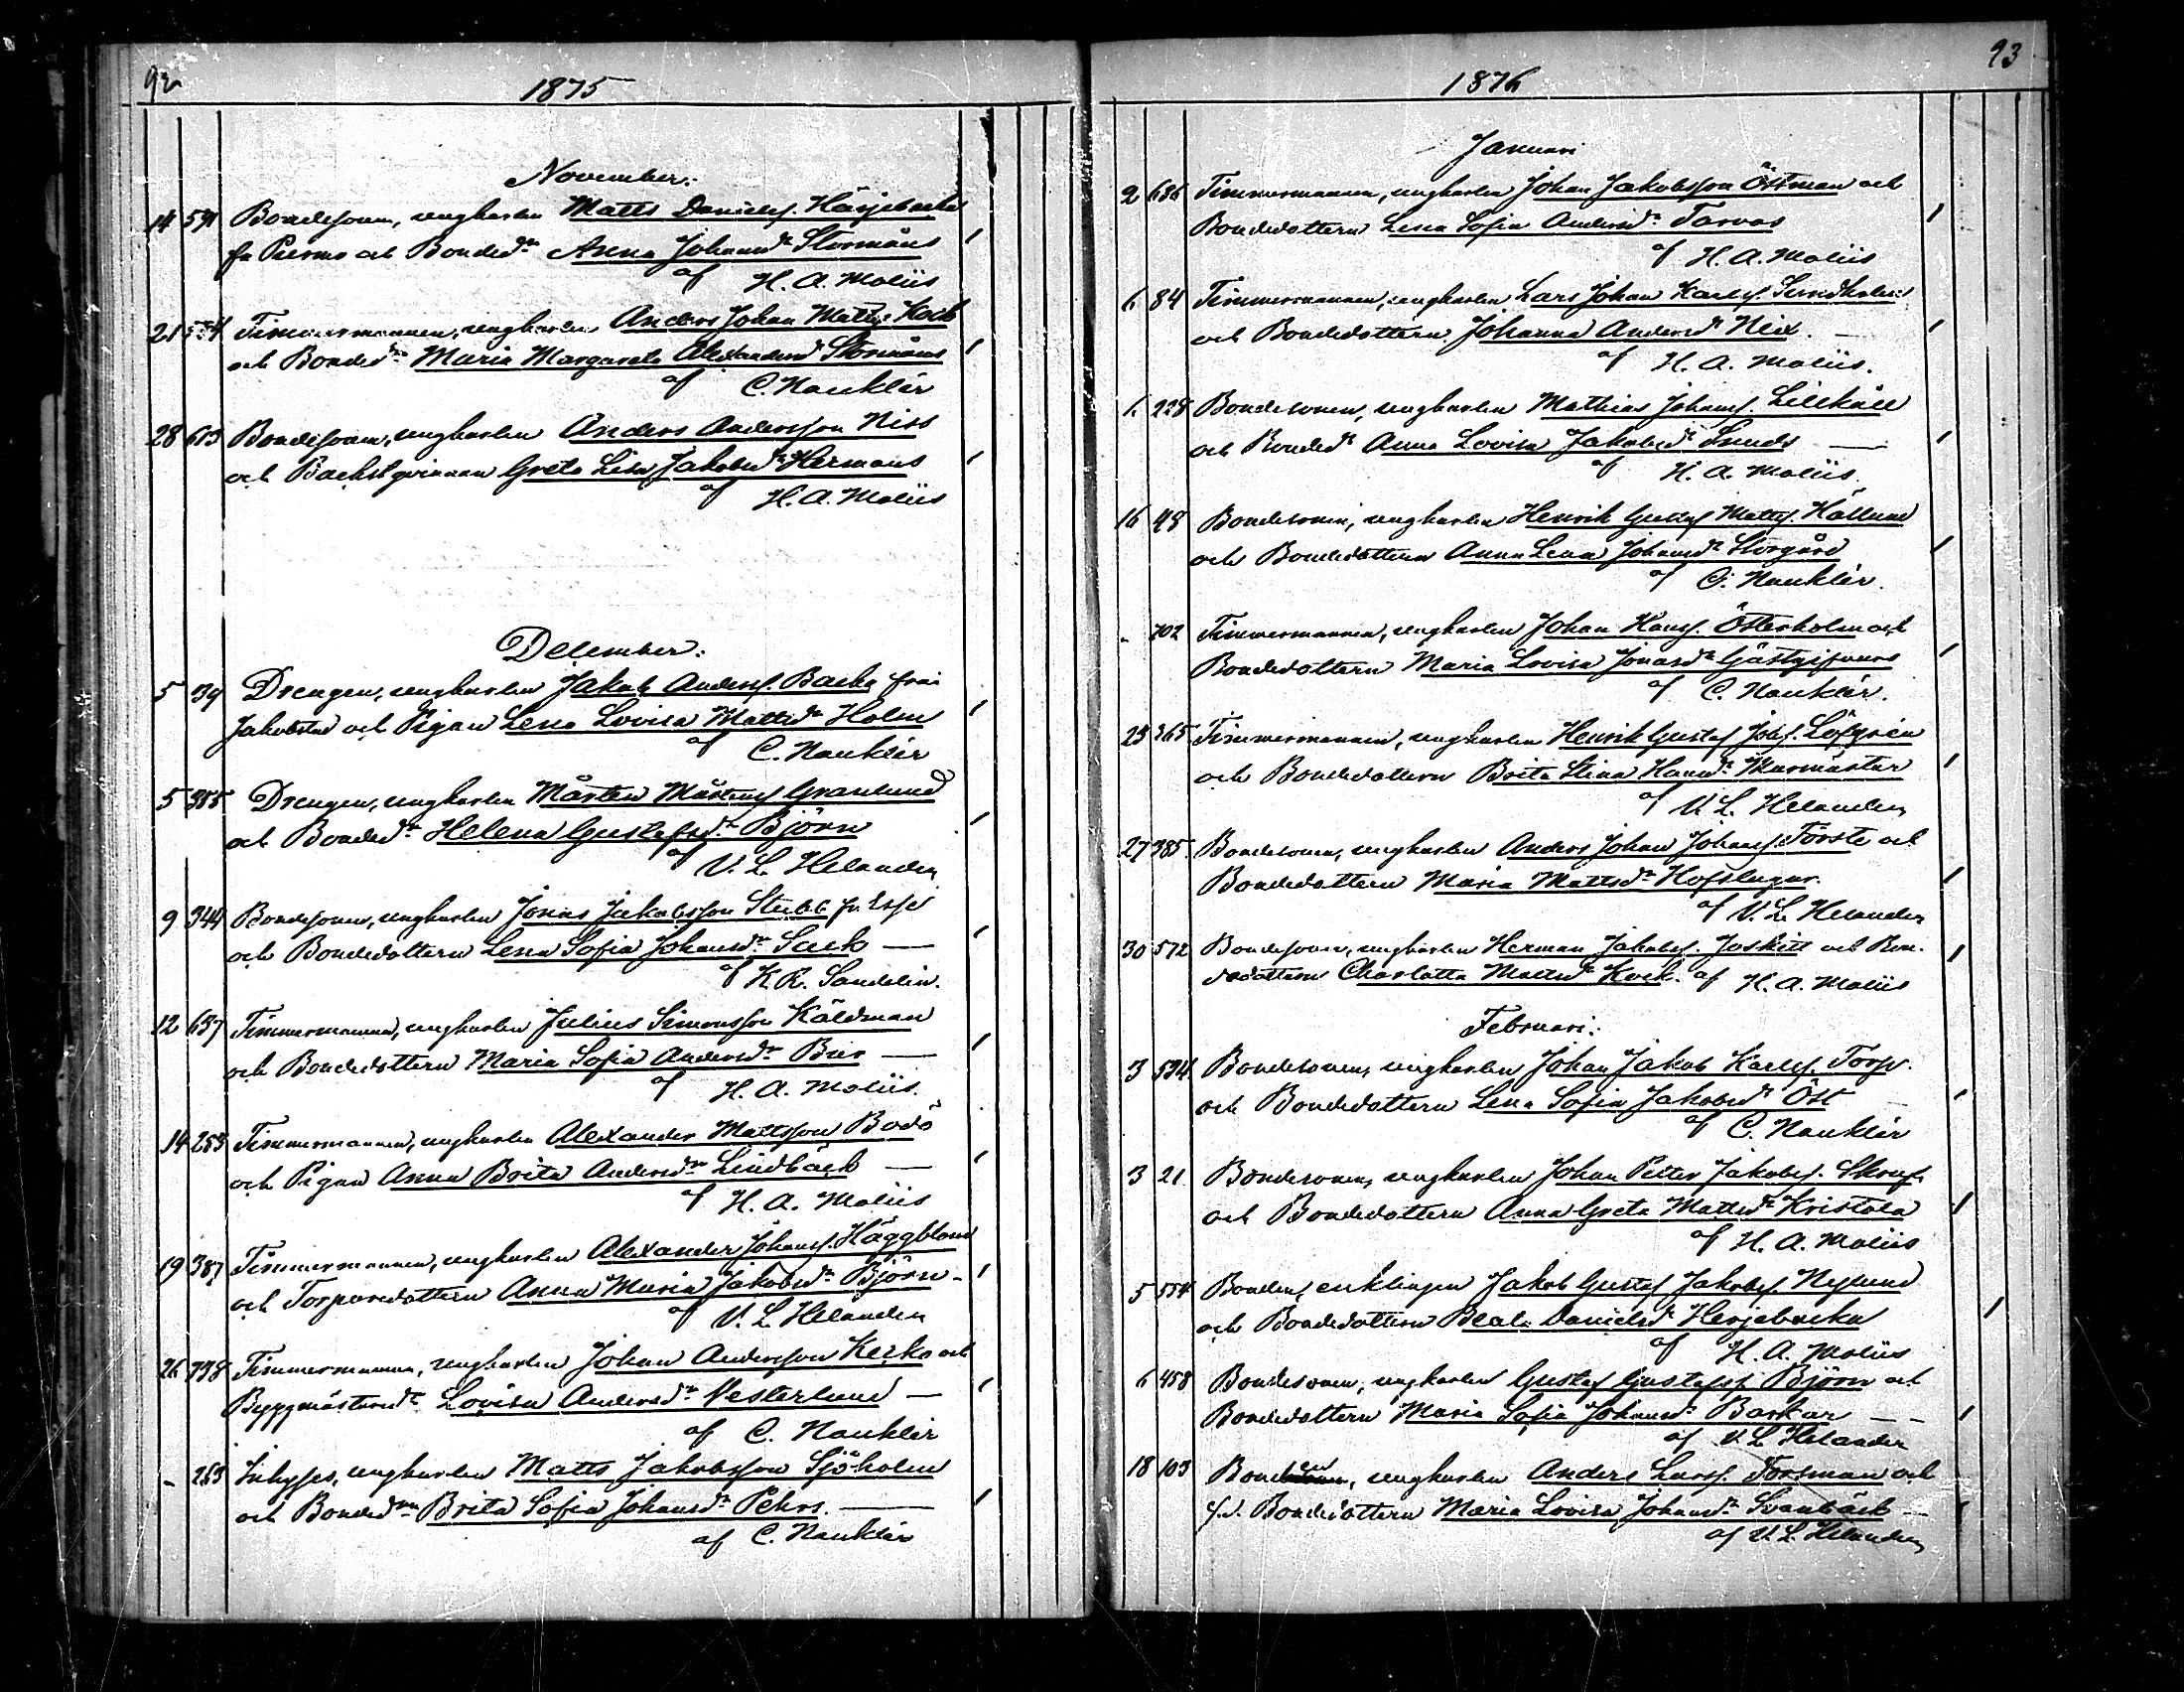 92
1875
November:
14 591 Bondesonen, ungkarlen Matts Daniels. Härjebacka
fr Purmo och Bonded:r Anna Johansd:r Stormåns
af H. A. Moliis
21 Timmermannen, ungkarlen Anders Johan Matts. Kock
och Bonded:r Maria Margareta Alexandersd:r Stormåns
af C. Nauklér
28 613 Bondesonen, ungkarlen Anders Andersson Niss
och Greta Lisa Jakobsd:r Hermans
af H. A. Moliis
December:
5 39 Drengen, ungkarlen Jakob Anderss. Backa från
Jakobstad och Pigan Lena Lovisa Mattsd:r Holm
af C. Nauklér
5 385 Drengen, ungkarlen Mårten Mårtens. Granlund
och Bonded:r Helena Gustafsd:r Björn
af V. L. Helander
9 344 Bondesonen, ungkarlen Jonas Jakobsson Stubb fr Esse
och Bondedottern Lena Sofia Johansd:r Sack
af K. R. Sandelin.
12 637 Timmermannen, ungkarlen Julius Simonsson Käldman
och Bondedottern Maria Sofia Andersd:r Brir
af H. A. Moliis.
14 253 Timmermannen, ungkarlen Alexander Mattsson Bodö
och Pigan Anna Brita Andersd:r Lindbäck
af H. A. Moliis
19 387 Timmermannen, ungkarlen Alexander Johans. Häggblom
och Torparedottern Anna Maria Jakobsd:r Björn
af V. L. Helander
26 798 Timmermannen, ungkarlen Johan Andersson Kecko och
Byggmästared:r Lovisa Andersd:r Vesterlund
af C. Nauklér
- 263 Inhyses, ungkarlen Matts Jakobsson Sjöholm
och Bonded:r Brita Sofia Johansd:r Pehrs.
af C. Nauklér
93
1876
Januari
2 686 Timmermannen, ungkarlen Johan Jakobsson Östman och
Bondedottern Lena Sofia Andersd:r Tarvas
af H. A. Moliis
6 84 Timmermannen, ungkarlen Lars Johan Karls. Sundholm
och Bondedottern Johanna Andersd:r Nix.
af H. A. Moliis.
6 228 Bondesonen, ungkarlen Mathias Johans. Lillkåll
och Bonded:r Anna Lovisa Jakobsd:r Sunds
af H. A. Moliis.
16 48 Bondesonen, ungkarlen Henrik Gustaf Matts. Hällund
och Bondedottern Anna Lena Johansd:r Storgård
af C. Nauklér.
- 702 Timmermannen, ungkarlen Johan Hans. Österholm och
Bondedottern Maria Lovisa Jonasd:r Gästgifvars
af C. Nauklér.
23 365 Timmermannen, ungkarlen Henrik Gustaf Johs. Löfgren
och Bondedottern Brita Stina Hansd:r Murmästar
af V. L. Helander
27 385 Bondesonen, ungkarlen Anders Johan Johans. Förste och
Bondedottern Maria Mattsd:r Hofslagar.
af V. L. Helander
30 572 Bondesonen, ungkarlen Herman Jakobs. Joskitt och Bon-
dedottern Charlotta Mattsd:r Kock. af H. A. Moliis
Februari:
3 594 Bondesonen, ungkarlen Johan Jakob Karls. Torp.
och Bondedottern Lena Sofia Jakobsd:r Öst
af C. Nauklér
3 21 Bondesonen, ungkarlen Johan Petter Jakobs. Skruf
och Bondedottern Anna Greta Mattsd:r Kristola
af H. A. Moliis
5 554 Bonden, enklingen Jakob Gustaf Jakobs. Nylund
och Bondedottern Beata Danielsd:r Herjebacka
af H. A. Moliis
6 458 Bondesonen, ungkarlen Gustaf Gustafss. Björn och
Bondedottern Maria Sofia Johansd:r Backar
af V. L. Helander
18 103 Bonden, ungkarlen Anders Larss. Forsman och
f.d. Bondedottern Maria Lovisa Johansd:r Svanbäck
af V. L. Helander